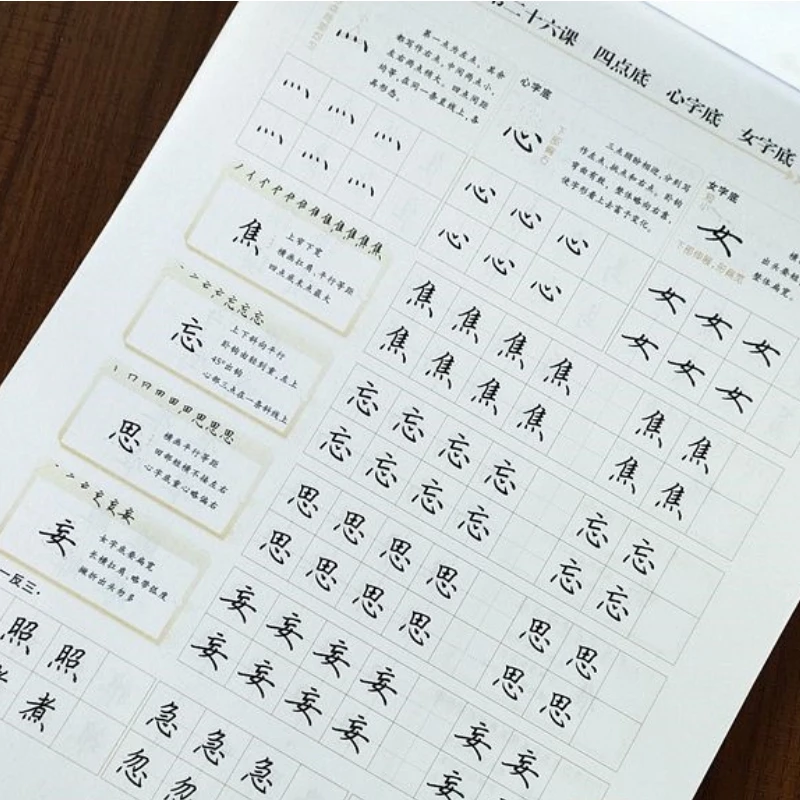 第二十六课 四点底 心字底 女字底
灬
第一点为左点，其余
都写作右点，中间两点小，
左右两点稍大，四点间距
均等，在同一条直线上，各
具形态。
灬 灬 灬
灬 灬 灬
心字底
心
下部偏右
三点顾盼相迎，分别写
作左点、挑点和右点，卧钩
弯曲有致，整体略向右靠，
使字形看上去富于变化。
心 心 心
心 心 心
女字底
女
下部伸展，形扁宽
整体扁宽。
女 女 女
女 女 女
焦
上窄下宽
横画扛肩、平行等距
四点底末点最大
忘
上下斜向平行
卧钩由轻到重，左上
45°出钩
心部三点在一条斜线上
思
横画平行等距
田部短横不接左右
心字底重心略偏右
妄
女字底要扁宽
长横扛肩、略带弧度
撇折出头勿多
焦 焦 焦 焦 焦 焦
焦 焦 焦 焦 焦 焦
忘 忘 忘 忘 忘 忘
忘 忘 忘 忘 忘 忘
思 思 思 思 思 思
思 思 思 思 思 思
妄 妄 妄 妄 妄 妄
妄 妄 妄 妄 妄 妄
一反三·
照 照
煮
急 急 急
忽 忽